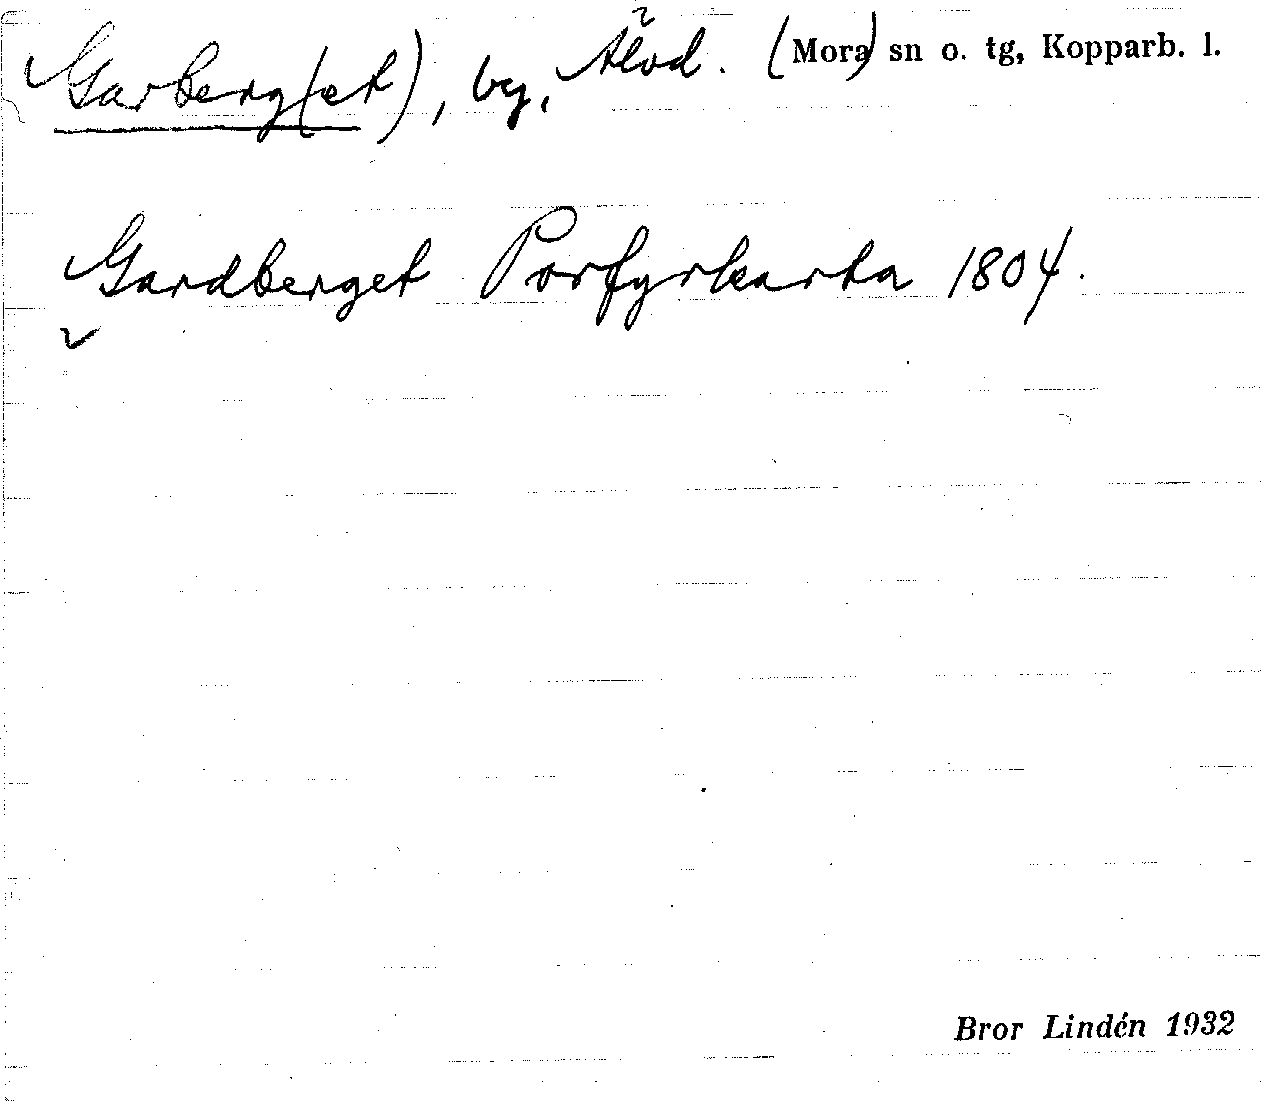 Garberg(et), by, Älvd. (Mora) sn o. tg, Kopparb. l.
Gardberget Porfyrkarta 1804.
Bror Lindén 1932